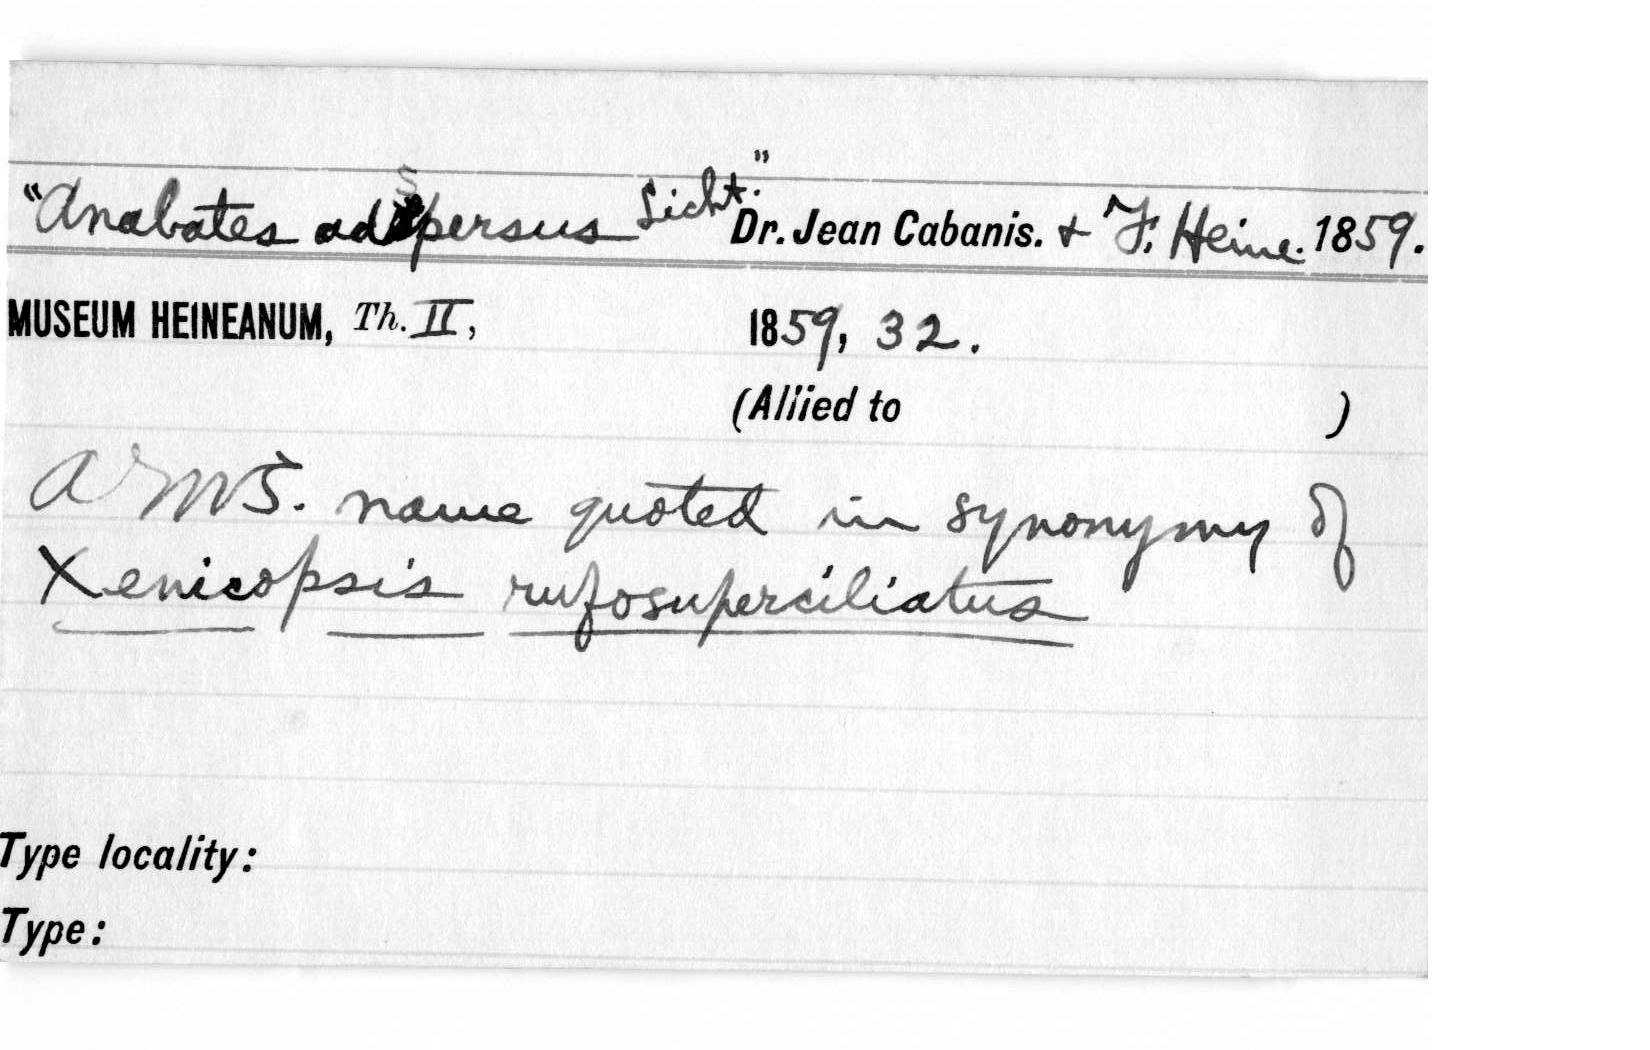 "Anabates adspersus Licht." Dr. Jean Cabanis. & F. Heine. 1859.
MUSEUM HEINEANUM, Th. II, 1859, 32.
(Allied to )
A MS. name quoted in synonymy of
Xenicopsis rufosuperciliatus
Type locality:
Type: